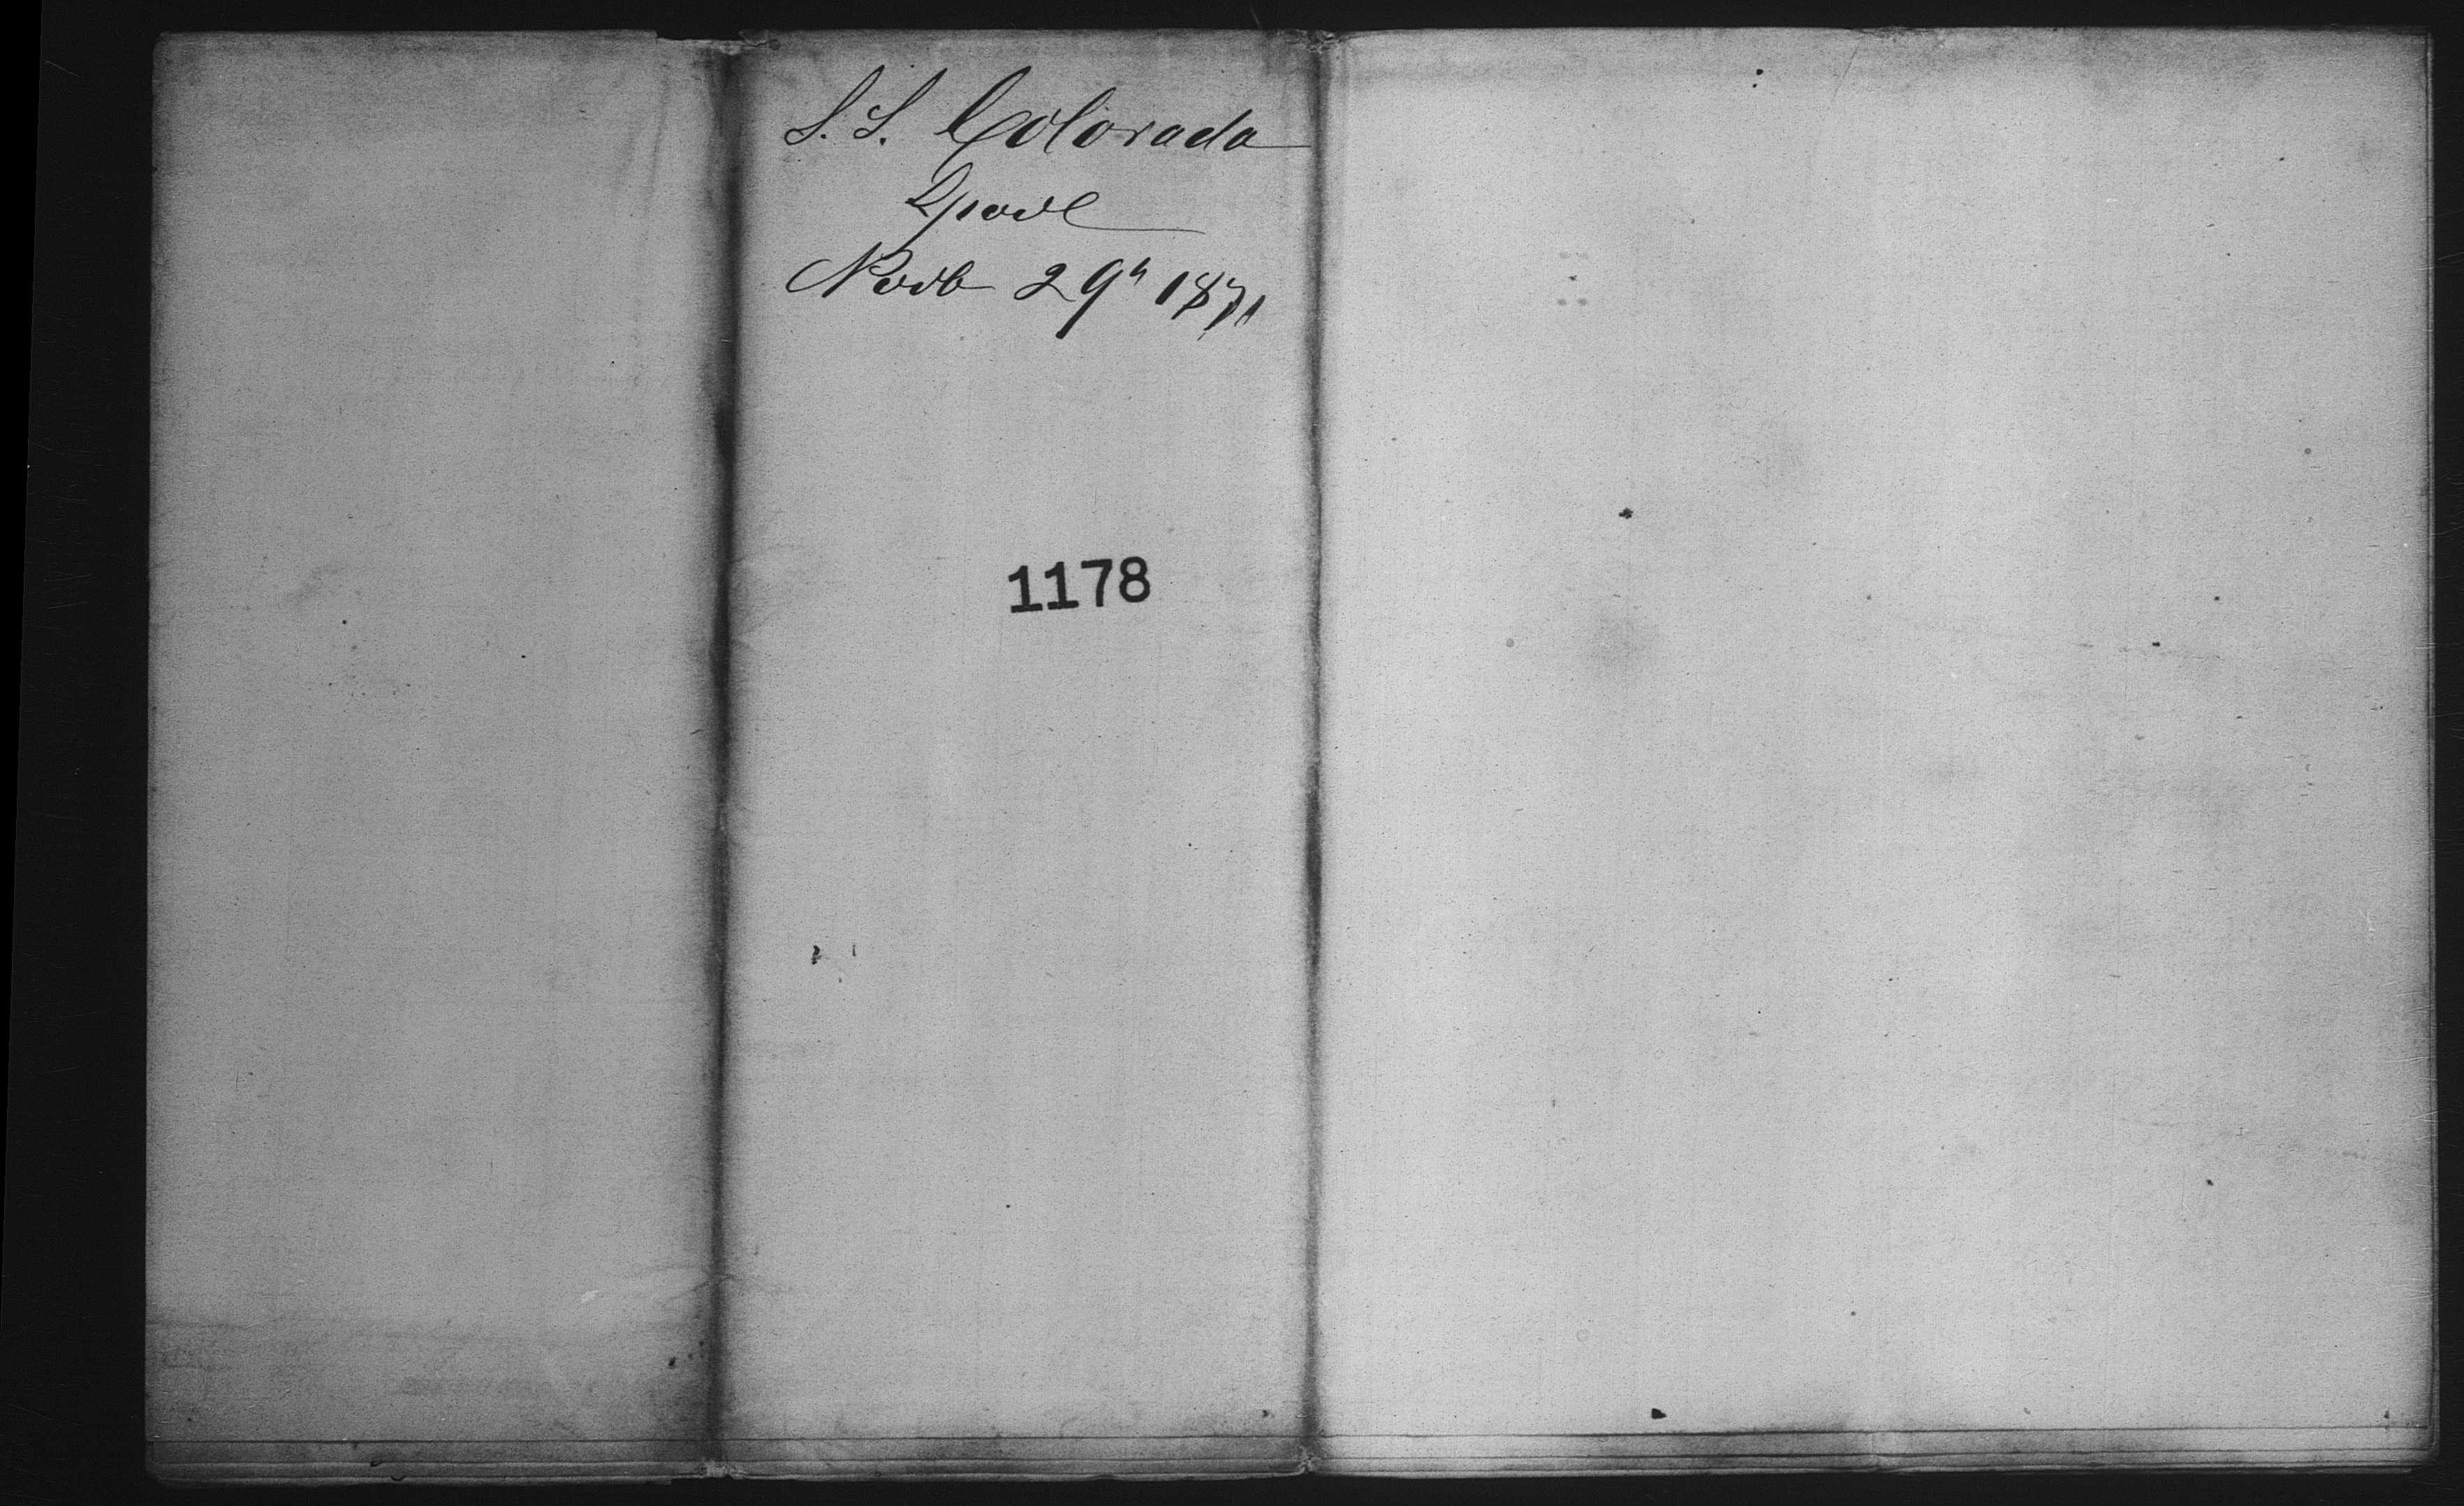 S.S. Colorada
Lpool
Novb 29th 1871
1178